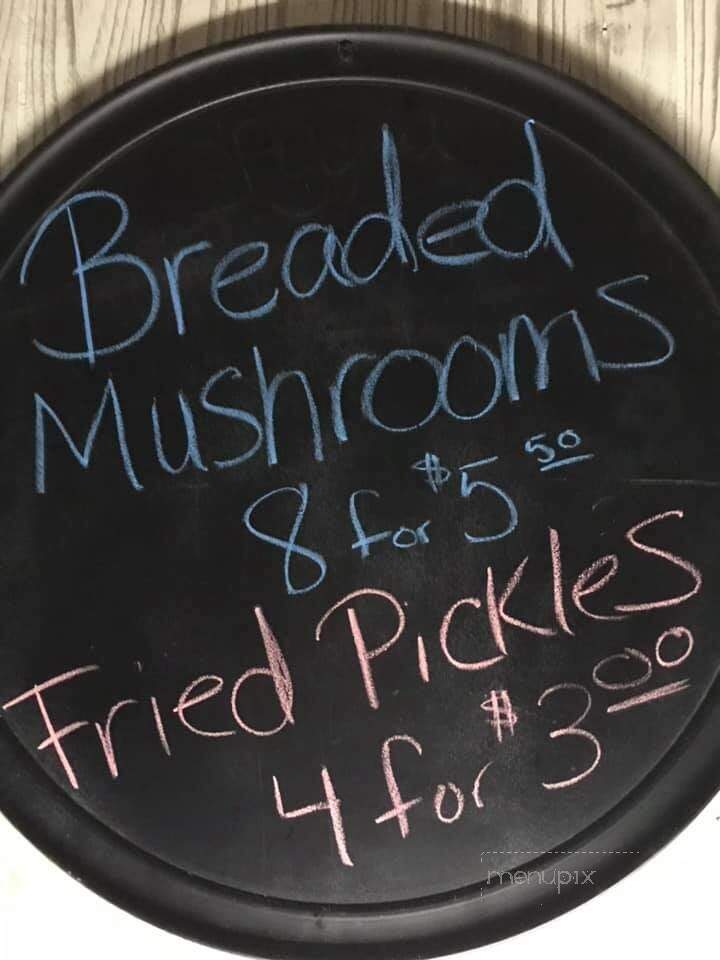 Breaded
Mushrooms
8 for $5 50
Fried Pickles
4 for $3 00
menupix